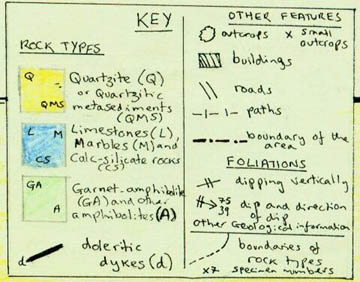 KEY
ROCK TYPES
Q
QMS
Quartzite (Q)
or Quartzitic
metasediments
(QMS)
L M
CS
Limestones (L),
Marbles (M) and
Calc-silicate rocks
(CS)
GA
A
Garnet-amphibolite
(GA) and other
amphibolites (A)
d
doleritic
dykes (d)
OTHER FEATURES
outcrops x small
outcrops
buildings
roads
paths
boundary of the
area
FOLIATIONS
dipping vertically
75
39
dip and direction
of dip
Other Geological information
boundaries of
rock types
x7 specimen numbers